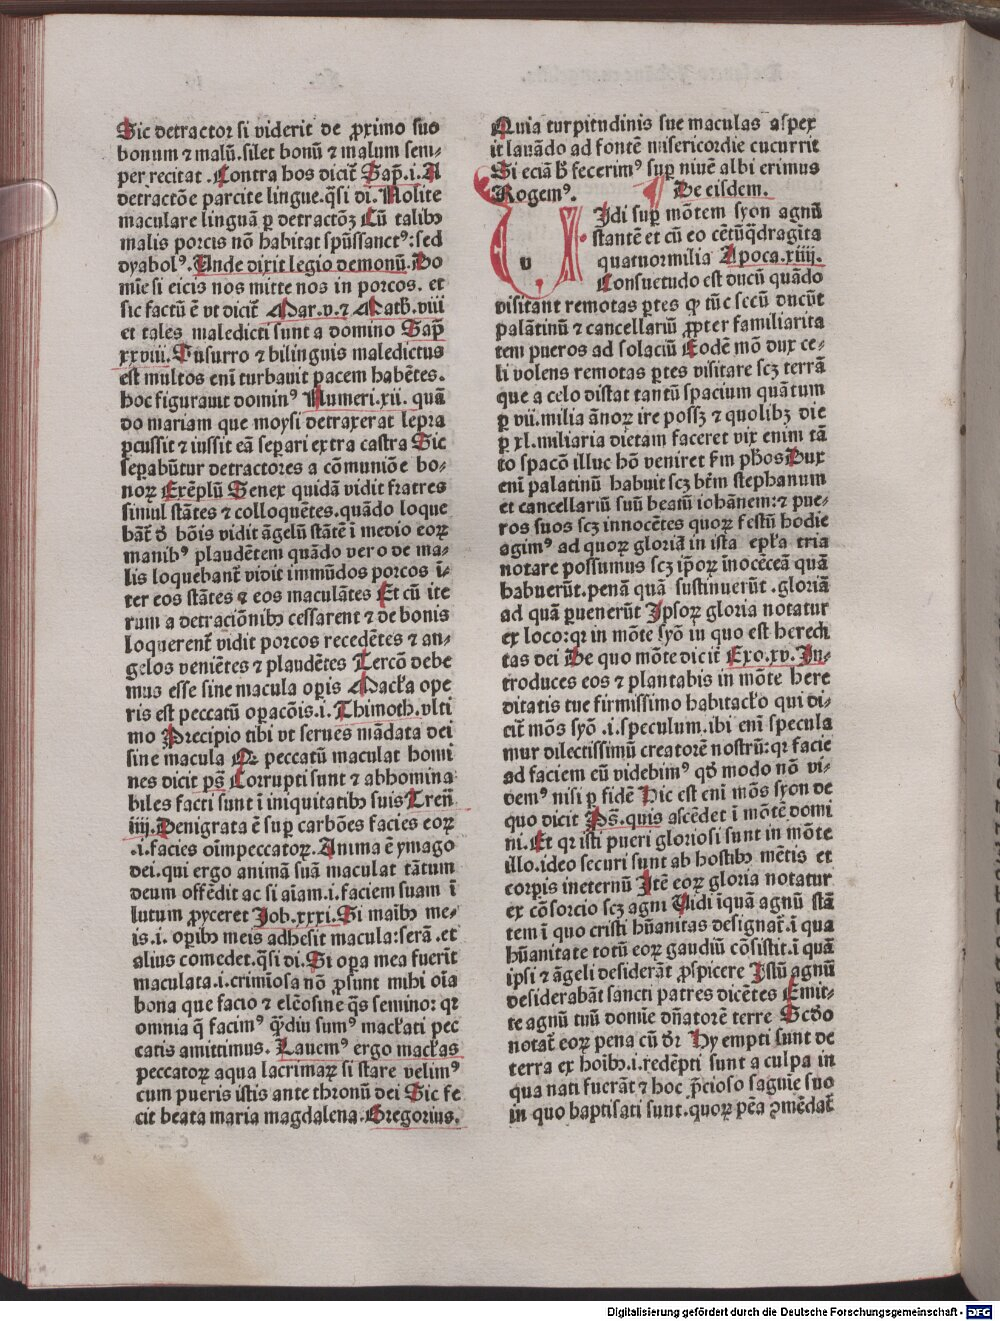 Sic detractor si viderit de ꝓximo suo
bonum ⁊ malū.silet bonū ⁊ malum sem⸗
per recitat .Contra hos dicit̄ Sap̄.i.A
detractōe parcite lingue.q̄si di.Nolite
maculare linguā ꝑ detractōꝫ Cū talibꝰ
malis porcis nō habitat sp̄ūssanctꝰ:sed
dyabolꝰ.Unde dixit legio demonū.Do
mīe si eicis nos mitte nos in porcos. et
sic factū ē vt dicit̄ Mar.v.⁊ Math̄.viii
et tales maledicti sunt a domino Sap̄
xxviii.Susurro ⁊ bilinguis maledictus
est multos enī turbauit pacem habētes.
hoc figurauit dominꝰ Numeri.xii. quā
do mariam que moysi detraxerat lepra
ꝑcussit ⁊ iussit eā seꝑari extra castra Sic
seꝑabūtur detractores a cōmuniōe bo⸗
noꝝ Exēplū Senex quidā vidit fratres
simul stātes ⁊ colloquētes.quādo loque
bāt̄ d̄ bōis vidit āgelū stātē ī medio eoꝝ
manibꝰ plaudētem quādo vero de ma⸗
lis loquebant̄ vidit immūdos porcos ī⸗
ter eos stātes ⁊ eos maculātes Et cū ite
rum a detraciōnibꝰ cessarent ⁊ de bonis
loquerent̄ vidit porcos recedētes ⁊ an⸗
gelos veniētes ⁊ plaudētes Tercō debe
mus esse sine macula oꝑis Macl̄a ope
ris est peccatū oꝑacōis.i.Thimoth.vlti
mo Precipio tibi vt serues mādata dei
sine macula Qꝛ peccatū maculat homi
nes dicit ps̄ Corrupti sunt ⁊ abhomina
biles facti sunt ī iniquitatibꝰ suis Tren̄
iiij.Denigrata ē suꝑ carbōes facies eoꝝ
.i.facies oīm peccatoꝝ.Anima ē ymago
dei.qui ergo animā suā maculat tātum
deum offēdit ac si aīam.i.faciem suam ī
lutum ꝓyceret Job.xxxi.Si maībꝰ me⸗
is.i. oꝑibꝰ meis adhesit macula:serā .et
alius comedet.q̄si di.Si oꝑa mea fuerīt
maculata.i.crimīosa nō ꝓsunt mihi oīa
bona que facio ⁊ elēosine q̄s semino: qꝛ
omnia q̄ facimꝰ q̄diu sumꝰ macl̄ati pec
catis amittimus. Lauemꝰ ergo macl̄as
peccatoꝝ aqua lacrimaꝝ si stare velimꝰ
cum pueris istis ante thronū dei Sic fe
cit beata maria magdalena.Gregorius.
Quia turpitudinis sue maculas aspex
it lauādo ad fontē misericordie cucurrit
Si eciā h̄ fecerimꝰ suꝑ niuē albi erimus
Rogemꝰ. De eisdem.
VIdi suꝑ mōtem syon agnū
stantē et cū eo cētūq̄dragīta
quatuormilia Apoca.xiiij.
Consuetudo est ducū quādo
visitant remotas ꝑtes qꝫ tūc secū ducūt
palātinū ⁊ cancellariū ꝓpter familiarita
tem pueros ad solaciū Eodē mō dux ce⸗
li volens remotas ꝑtes visitare scꝫ terrā
que a celo distat tantū spacium quātum
ꝑ vii.milia ānoꝝ ire possꝫ ⁊ quolibꝫ die
ꝑ xl.miliaria dietam faceret vix enim tā
to spacō illuc hō veniret s̄m ph̄os Dux
enī palatinū habuit scꝫ btm̄ stephanum
et cancellariū suū beatū iohānem:⁊ pue⸗
ros suos scꝫ innocētes quoꝝ festū hodie
agimꝰ ad quoꝝ gloriā in ista epl̄a tria
notare possumus scꝫ ip̄oꝝ īnocēceā quā
habuerūt.penā quā sustinuerūt .gloriā
ad quā ꝑuenerūt Ipsoꝝ gloria notatur
ex loco:qꝛ in mōte syō in quo est heredi
tas dei De quo mōte dicit̄ Exo.xv.In⸗
troduces eos ⁊ plantabis in mōte here
ditatis tue firmissimo habitacl̄o qui di⸗
cit̄ mōs syō .i.speculum.ibi enī specula
mur dilectissimū creatorē nostrū:qꝛ facie
ad faciem eū videbimꝰ qd̄ modo nō vi⸗
demꝰ nisi ꝑ fidē Hic est enī mōs syon de
quo dicit Ps̄.quis ascēdet ī mōtē domi
ni.Et qꝛ isti pueri gloriosi sunt in mōte
illo.ideo securi sunt ab hostibꝰ mētis et
corpis ineternū Itē eoꝝ gloria notatur
ex cōsorcio scꝫ agni Uidi īquā agnū stā
tem ī quo cristi hūanitas designat̄.ī qua
hūanitate totū eoꝝ gaudiū cōsistit.ī quā
ipsi ⁊ āgeli desiderāt ꝓspicere Istū agnū
desiderabāt sancti patres dicētes Emit⸗
te agnū tuū domīe dn̄atorē terre Scdō
notat̄ eoꝝ pena cū dr̄ Hy empti sunt de
terra ex hoībꝰ.i.redēpti sunt a culpa in
qua nati fuerāt ⁊ hoc p̄cioso sāguīe suo
in quo baptisati sunt.quoꝝ pēa ꝯmēdat̄
Digitalisierung gefördert durch die Deutsche Forschungsgemeinschaft - DFG